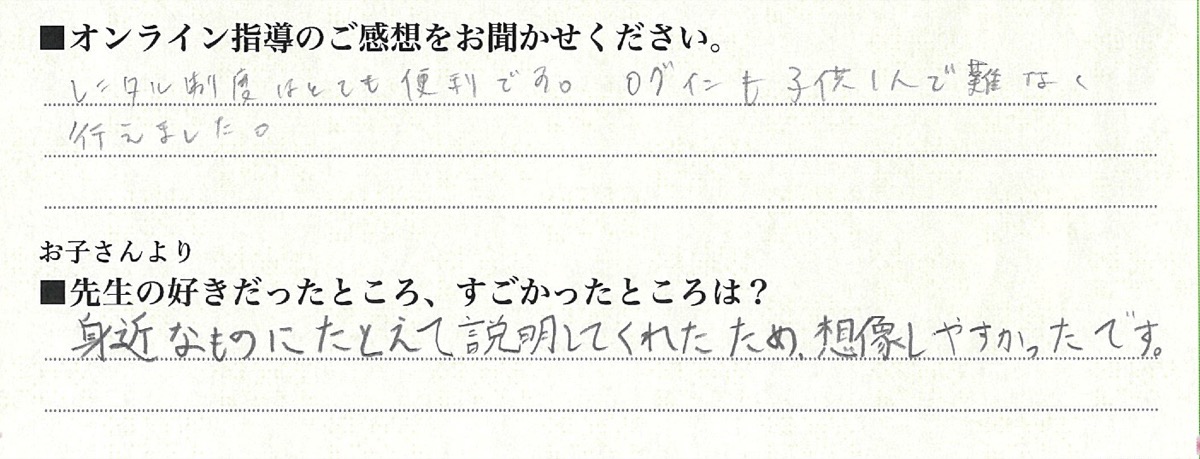 ■オンライン指導のご感想をお聞かせください。
レンタル制度はとても便利です。ログインも子供1人で難なく
行えました。
お子さんより
■先生の好きだったところ、すごかったところは？
身近なものにたとえて説明してくれたため、想像しやすかったです。